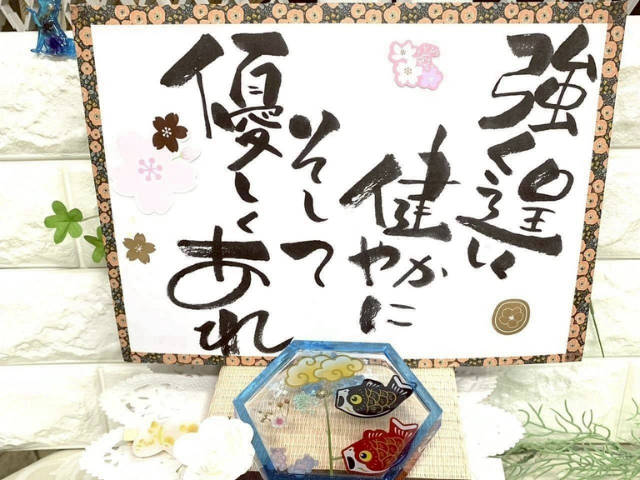 強く逞しく
健やかに
そして
優しくあれ